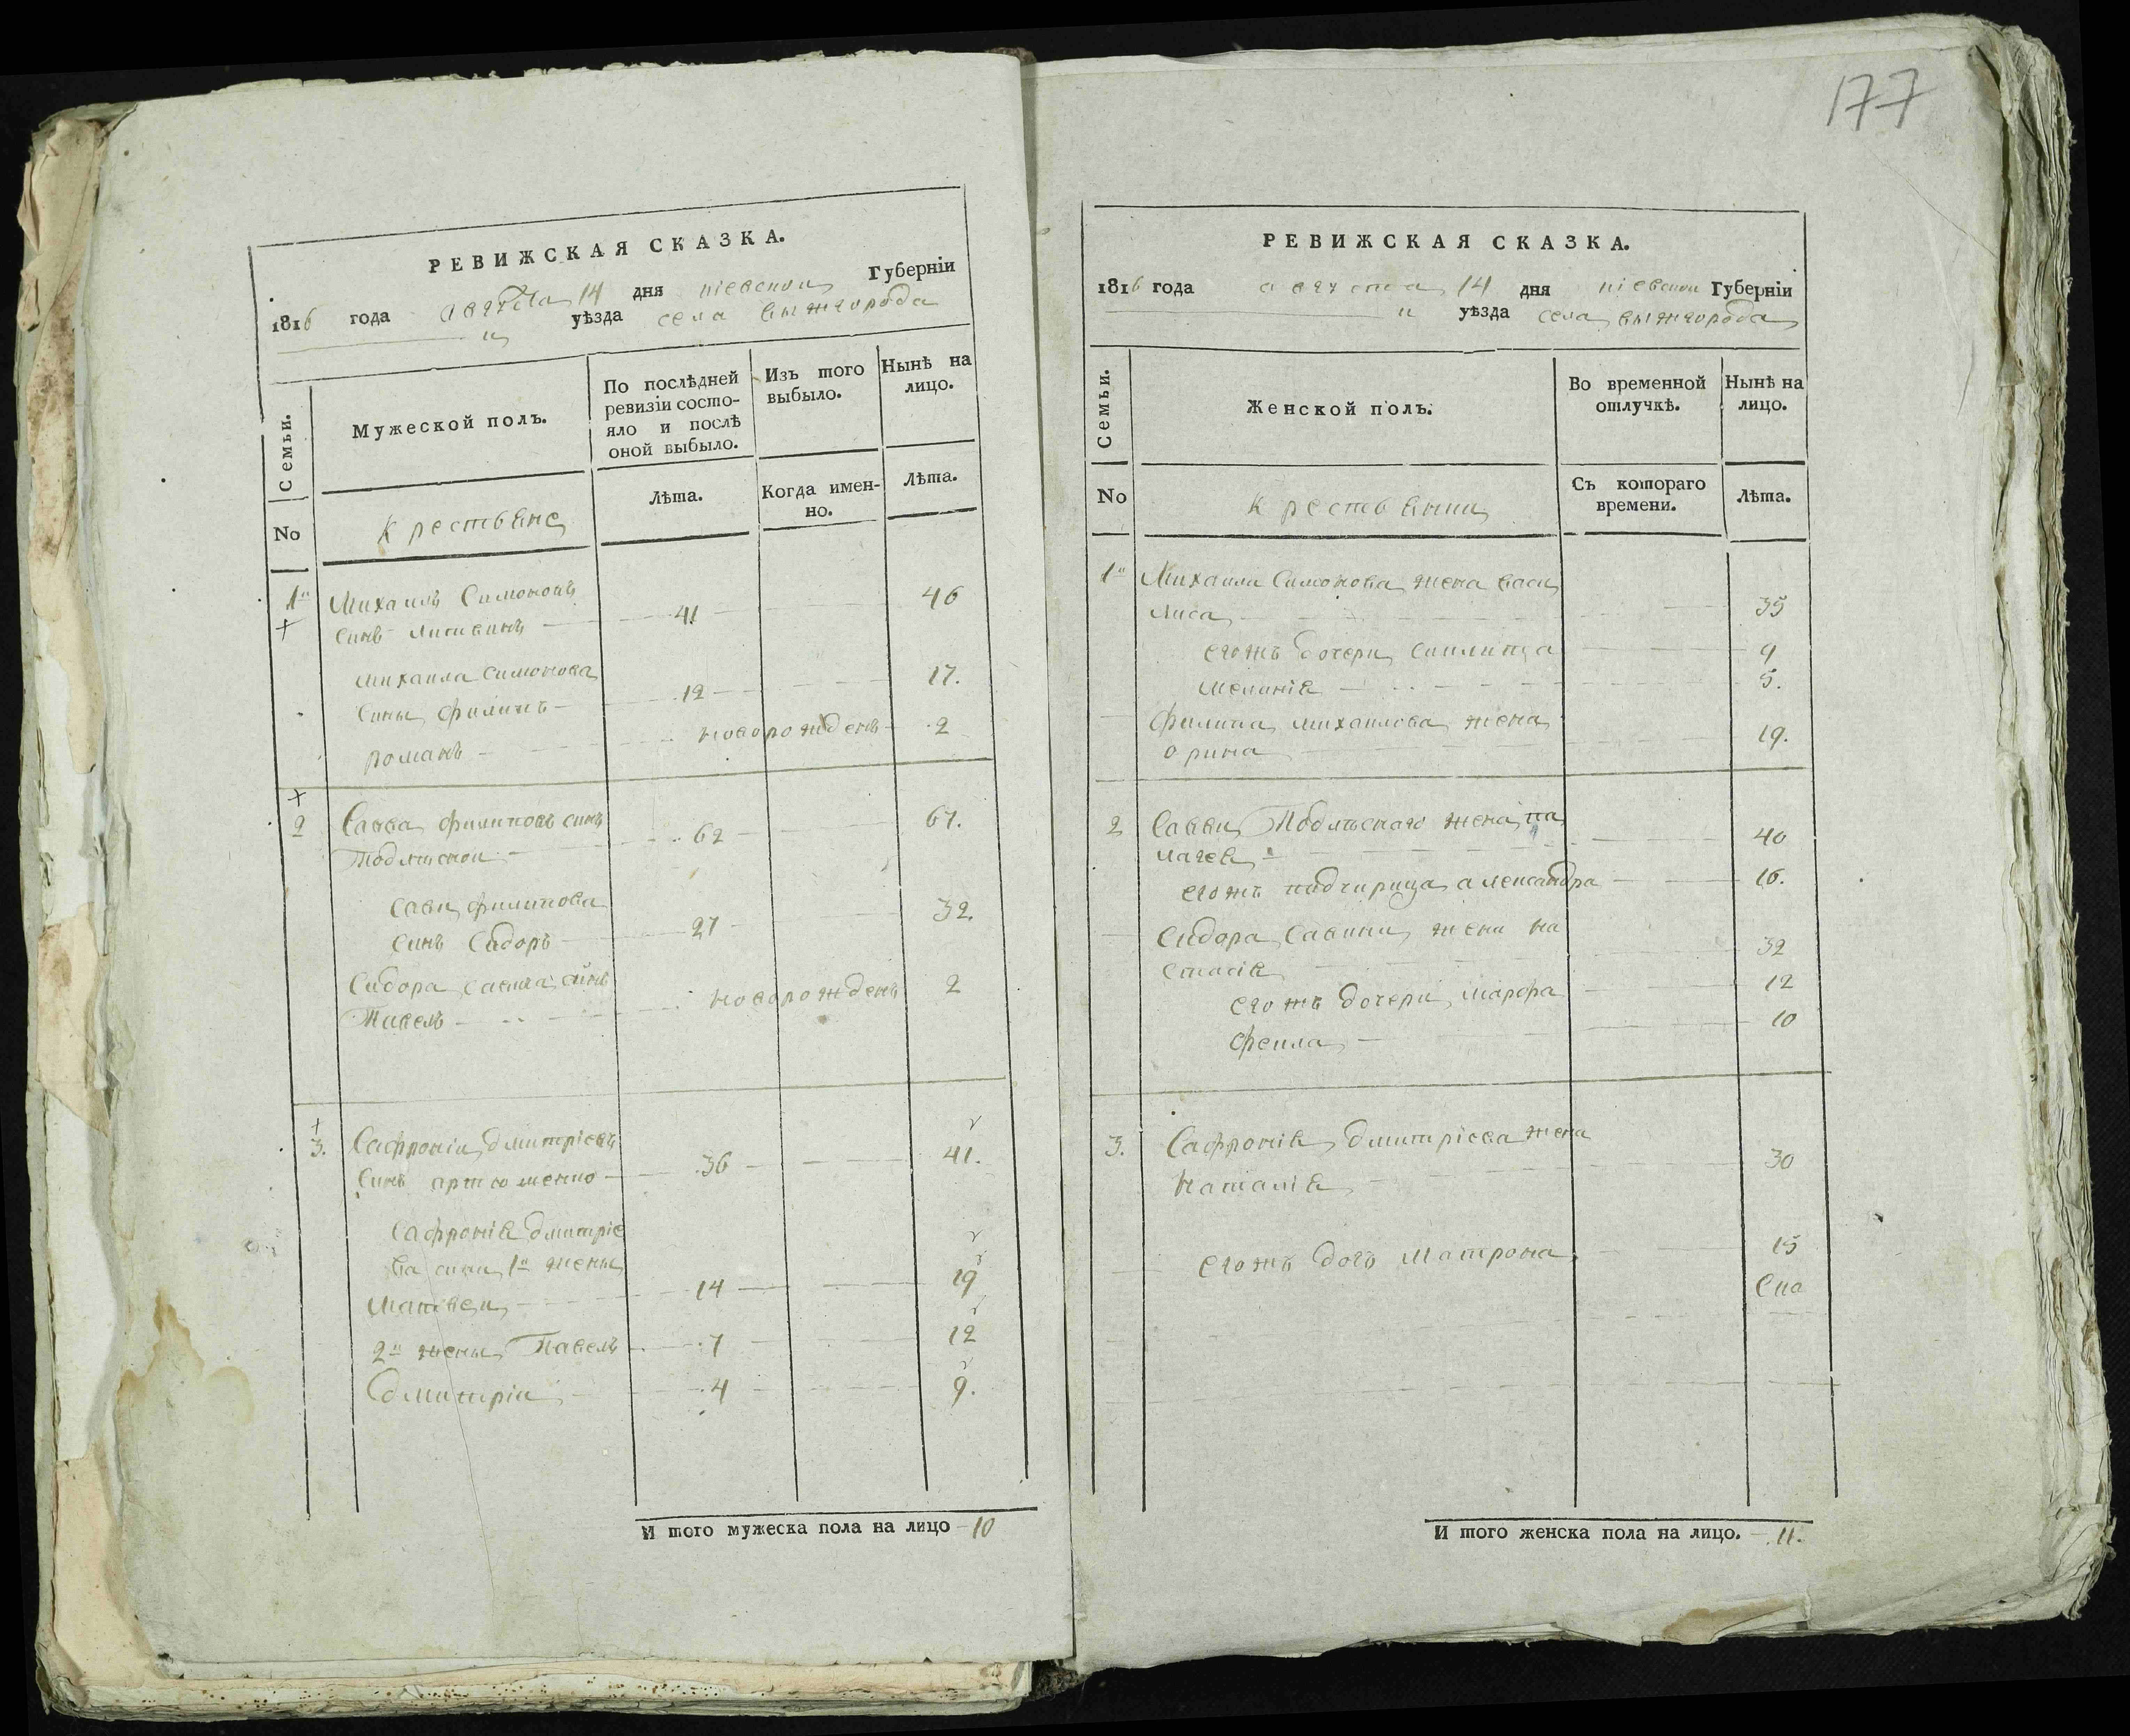 177
РЕВИЖСКАЯ СКАЗКА.
1816 года августа 14 дня кіевской Губерніи
и уѣзда села вышгорода
Семьи.
Мужеской полъ.
По послѣдней ревизіи состо-
яло и послѣ
оной выбыло.
Изъ того
выбыло.
Нынѣ на
лицо.
No
крестьяне
Лѣта.
Когда имен-
но.
Лѣта.
1й Михаилъ Симоновъ
синъ литвинъ 41 46
михаила симонова
сины филипъ 12 17.
романъ новорожденъ 2
2 Савва филиповъ синъ
Подлискои 62 67.
савы филипова
синъ Сидоръ 27 32.
Сидора савина синъ
Павелъ новорожденъ 2
3. Сафроніи дмитріевъ
синъ артюменко 36 41.
сафронія дмитріе
ва сини 1й жены
матвеи 14 19
2й жены Павелъ 7 12
дмитріи 4 9.
И того мужеска пола на лицо 10
РЕВИЖСКАЯ СКАЗКА.
1816 года августа 14 дня кіевской Губерніи
и уѣзда села вышгорода
Семьи.
Женской полъ.
Во временной
отлучкѣ.
Нынѣ на
лицо.
No
крестьянки
Съ котораго
времени.
Лѣта.
1й Михаила Симонова жена васи
лиса 35
егожъ дочери 9
меланія 5.
филипа михаилова жена
орина 19.
2 Саввы Подлѣского жена па
лагея 40
егожъ падчирица александра 16.
Сидора савина жена на
стасія 32
егожъ дочери марфа 12
фекла 10
3. Сафронія дмитріева жена
наталія 30
егожъ дочъ матрона 15
И того женска пола на лицо. 11.